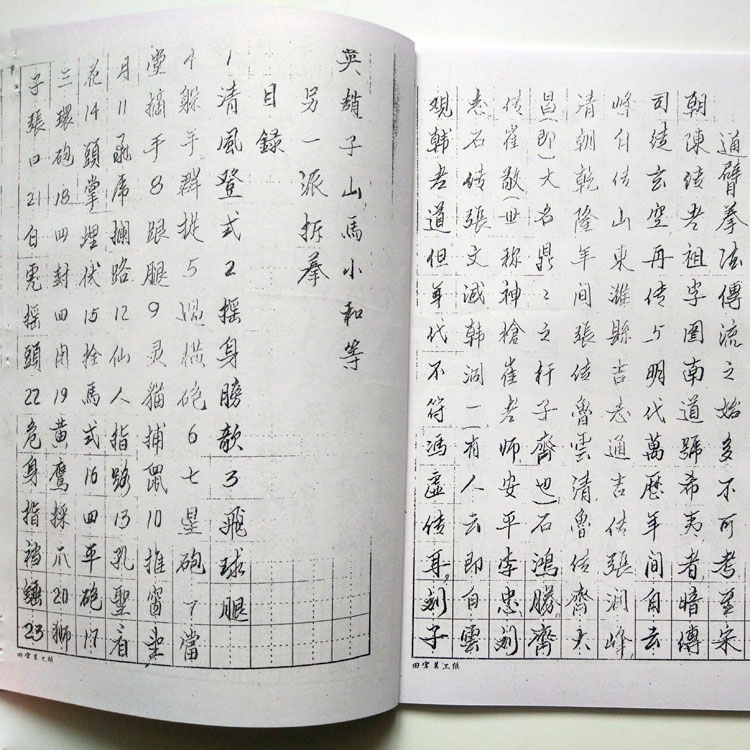 通臂拳法傳流之始多不可考至宋
朝陳传老祖字图南道號希夷者暗傳
司传玄空再传5明代萬歷年间自云
峰自传山東潍縣吉志通吉传張润峰
清朝乾隆年间張传魯雲清魯传齊大
昌(即)大名鼎〻之杆子齊也)石鴻勝齊
传崔敬(世称神槍崔老师安平李忠刘
志石传張文成韩洞一一有人云即白雲
观韩老道但年代不符冯虚传耳刘子
吴趙子山馬小和等
另一派拆拳
目録
1清風登式2摇身膀欹3飛球腿
4躲手群捉5迎横砲6七星砲7當
堂摘手8跟腿9灵貓捕鼠10推窗望
月11飛虎攔路12仙人指路13孔聖看
花14頭掌埋伏15拴馬式16四平砲17
三環砲18四封四闭19黄鷹採爪20獅
子張口21白虎摇頭22危身指裆錘23